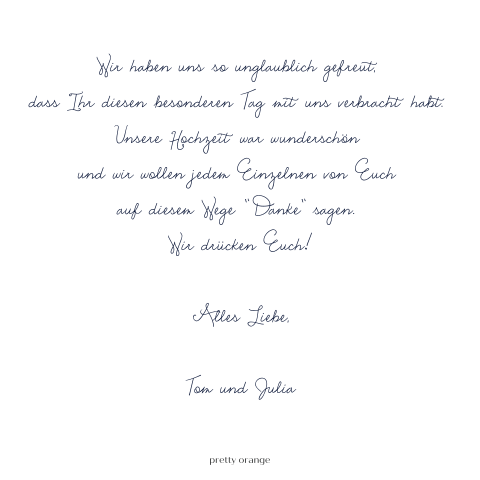 Wir haben uns so unglaublich gefreut,
dass Ihr diesen besonderen Tag mit uns verbracht habt.
Unsere Hochzeit war wunderschön
und wir wollen jedem Einzelnen von Euch
auf diesem Wege "Danke" sagen.
Wir drücken Euch!
Alles Liebe,
Tom und Julia
pretty orange